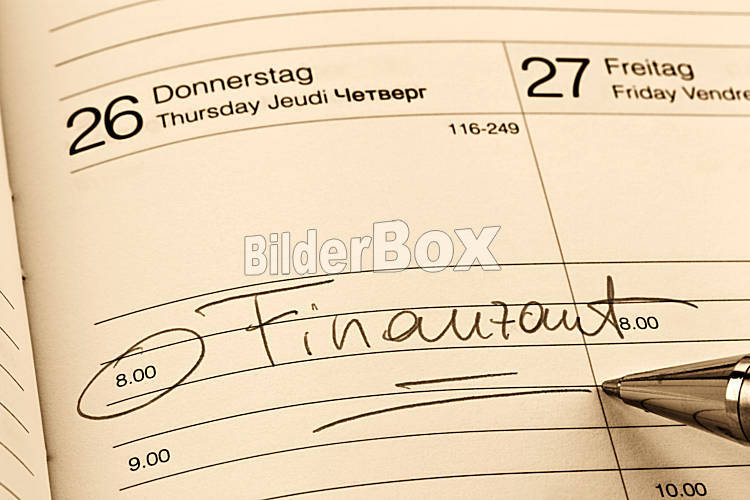 26 Donnerstag
Thursday Jeudi Четверг
116-249
27 Freitag
Friday Vendre
BilderBox
Finanzamt
8.00
8.00
9.00
10.00